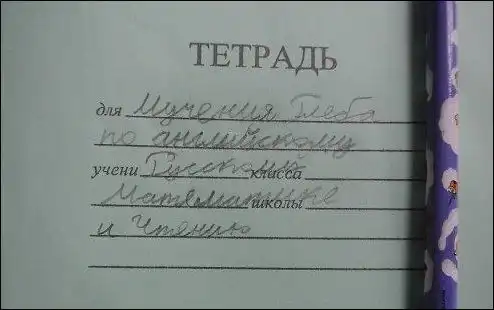 ТЕТРАДЬ
для Мучения Глеба
по английскому
учени Русский класса
Математике школы
и Чтению